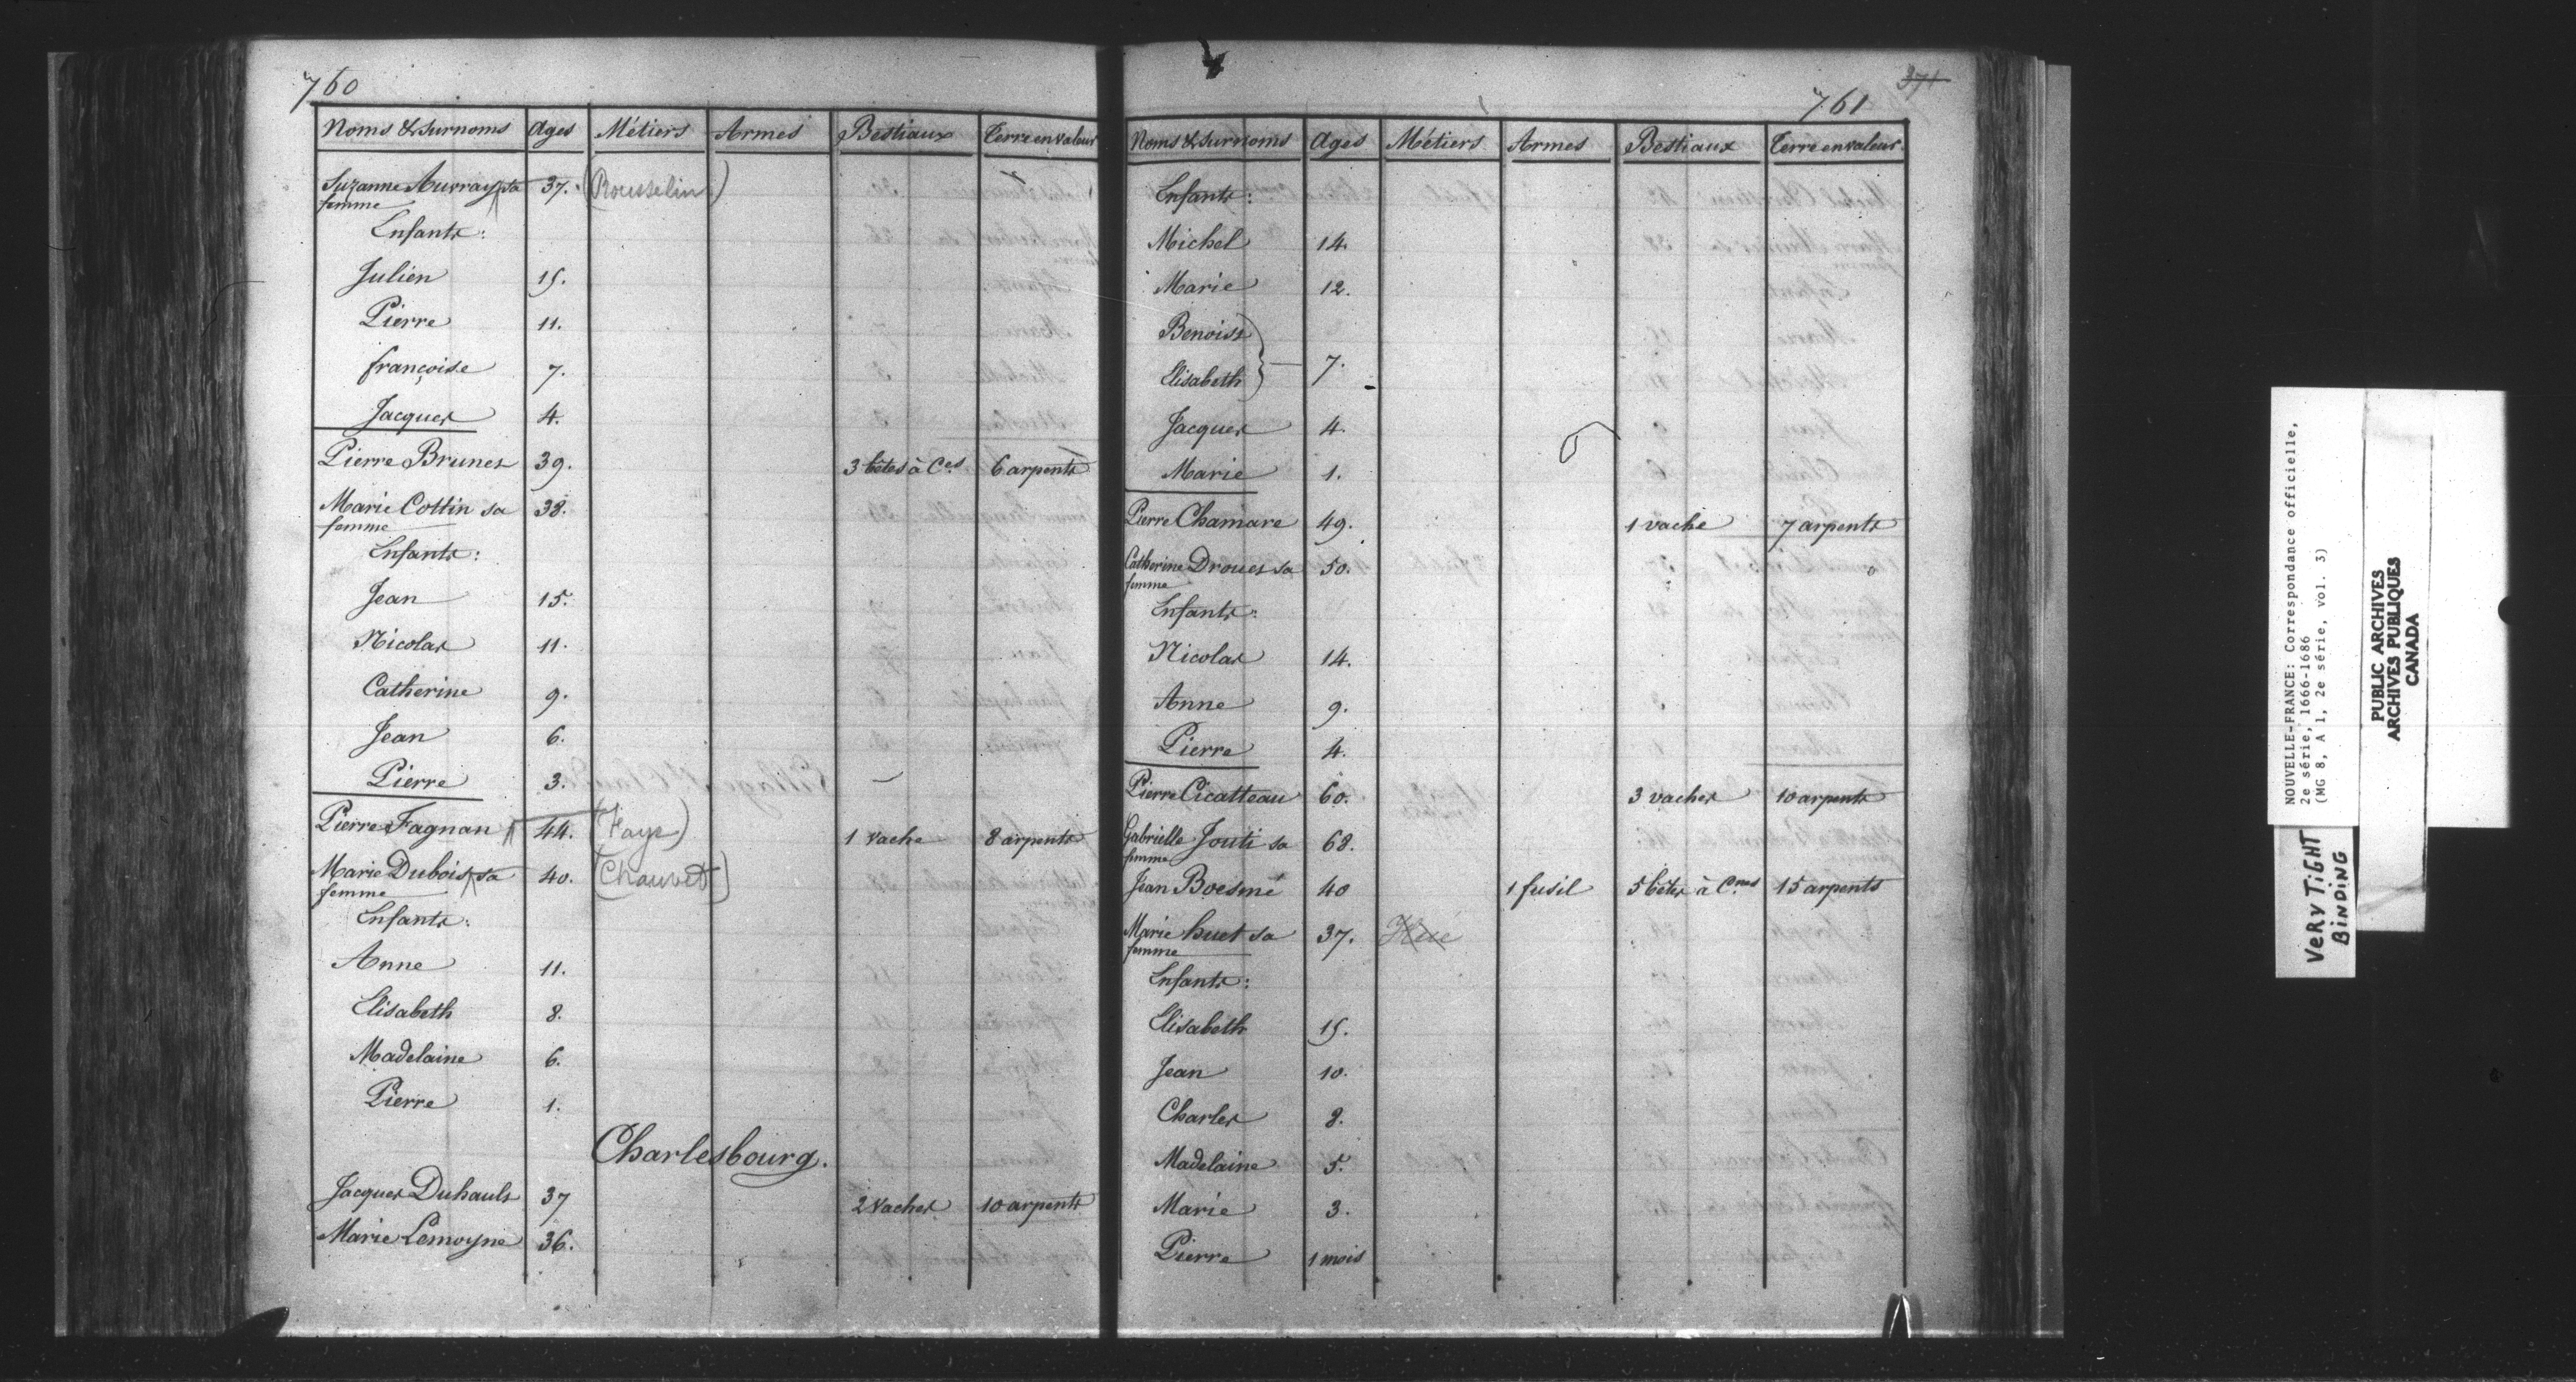 760
Noms & Surnoms Ages Métiers Armes Bestiaux Terre en valeur
Suzanne Aurray, sa 37. (Rousselin)
femme
Enfants:
Julien 15.
Pierre 11.
françoise 7.
Jacques 4.
Pierre Brunet 39. 3 bêtes à Ces 6 arpents
Marie Cottin sa 38.
femme
Enfants:
Jean 15.
Nicolas 11.
Catherine 9.
Jean 6.
Pierre 3.
Pierre Fagnan 44. (Faye) 1 vache 8 arpents
Marie Dubois, sa 40. (Chauvet)
femme
Enfants:
Anne 11.
Elisabeth 8.
Madelaine 6.
Pierre 1.
Charlesbourg.
Jacques Duhault 37 2 vaches 10 arpents
Marie Lemoyne 36.
371
761
Noms & Surnoms Ages Métiers Armes Bestiaux Terre en valeur
Enfants:
Michel 14.
Marie 12.
Benoist
7.
Elisabeth
Jacques 4.
Marie 1.
Pierre Chamare 49. 1 vache 7 arpents
Catherine Drouet sa 50.
femme
Enfants:
Nicolas 14.
Anne 9.
Pierre 4.
Pierre Cicatteau 60. 3 vaches 10 arpents
Gabrielle Jouti sa 68.
femme
Jean Boesmé 40 1 fusil 5 bêtes à Cnes 15 arpents
Marie huet sa 37. Hué
femme
Enfants:
Elisabeth 15.
Jean 10.
Charles 8.
Madelaine 5.
Marie 3.
Pierre 1 mois
NOUVELLE-FRANCE: Correspondance officielle,
2e série, 1666-1686
(MG 8, A 1, 2e série, vol. 3)
VERY TIGHT
BINDING
PUBLIC ARCHIVES
ARCHIVES PUBLIQUES
CANADA